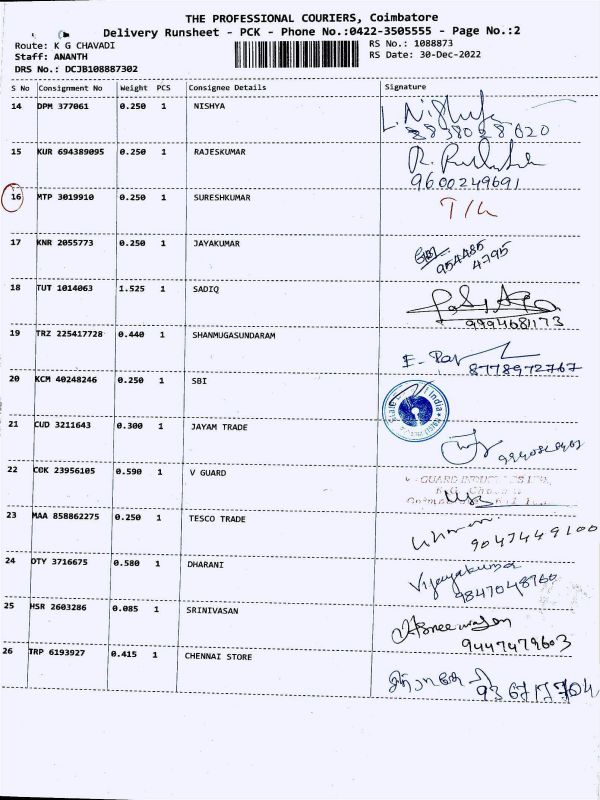 THE PROFESSIONAL COURIERS, Coimbatore
Delivery Runsheet - PCK - Phone No.:0422-3505555 - Page No.:2
Route: K G CHAVADI
RS No.: 1088873
Staff: ANANTH
RS Date: 30-Dec-2022
DRS No.: DCJB108887302
S No Consignment No Weight PCS Consignee Details Signature
14 DPM 377061 0.250 1 NISHYA
L. Nishya
15 KUR 694389095 0.250 1 RAJESKUMAR
9600249691
16 MTP 3019910 0.250 1 SURESHKUMAR T/L
17 KNR 2055773 0.250 1 JAYAKUMAR
954485
4795
18 TUT 1014063 1.525 1 SADIQ
9994681173
19 TRZ 225417728 0.440 1 SHANMUGASUNDARAM
8778972767
20 KCM 40248246 0.250 1 SBI
21 CUD 3211643 0.300 1 JAYAM TRADE
22 COK 23956105 0.590 1 V GUARD
23 MAA 858862275 0.250 1 TESCO TRADE
9047449100
24 OTY 3716675 0.580 1 DHARANI
Vijayakumar
9847048760
25 HSR 2603286 0.085 1 SRINIVASAN
9447479603
26 TRP 6193927 0.415 1 CHENNAI STORE